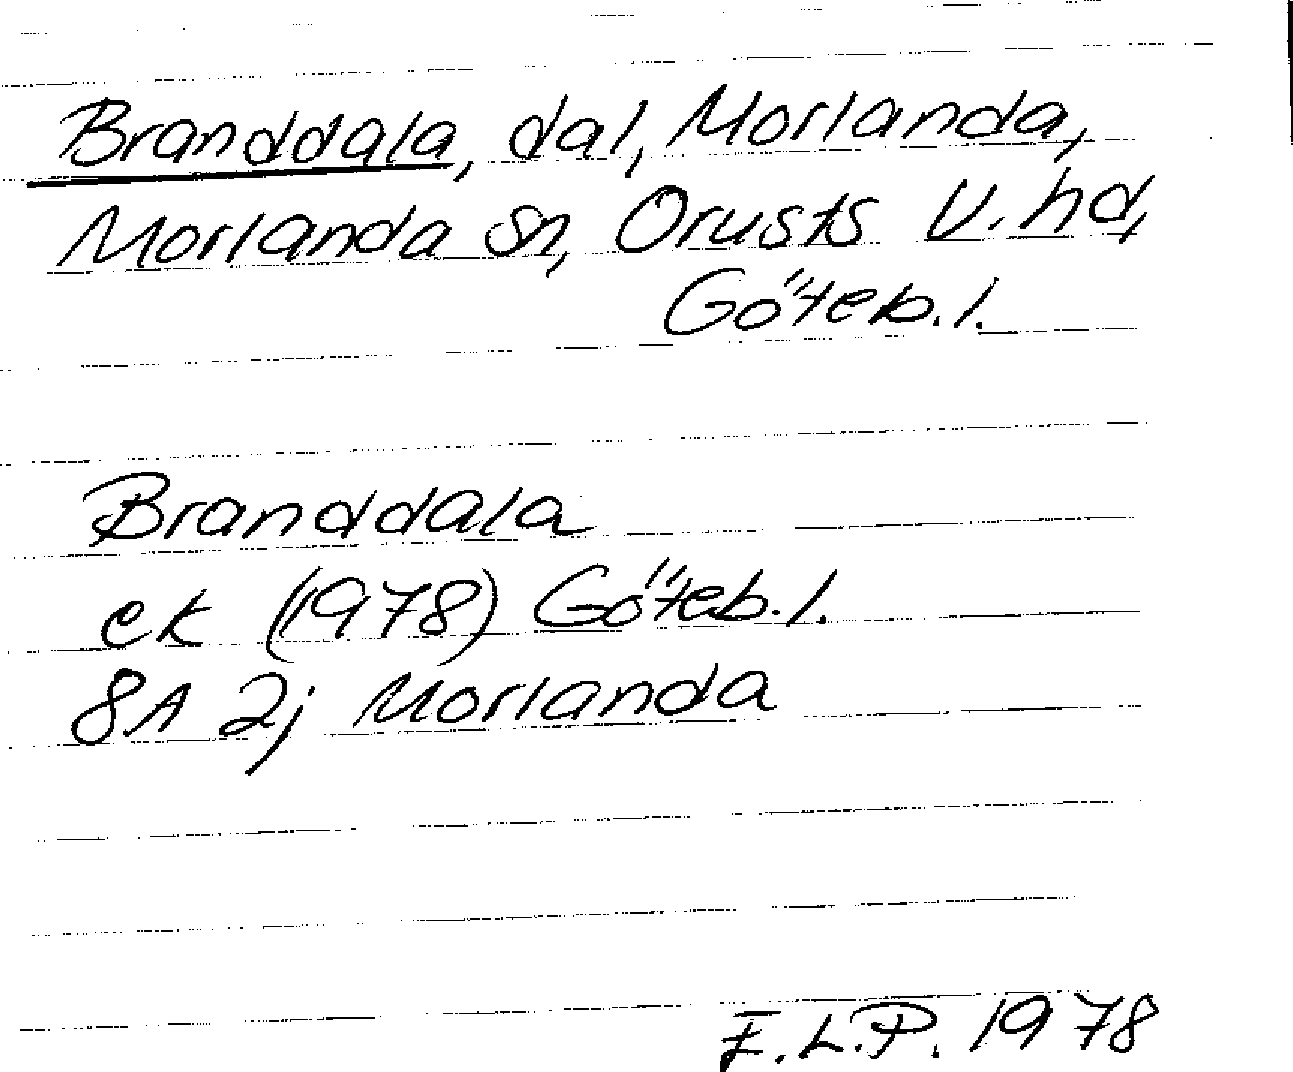 Branddala, dal, Morlanda,
Morlanda sn, Orusts V. hd,
Göteb. l.
Branddala
ek (1978) Göteb. l.
8A 2j Morlanda
E.L.P. 1978